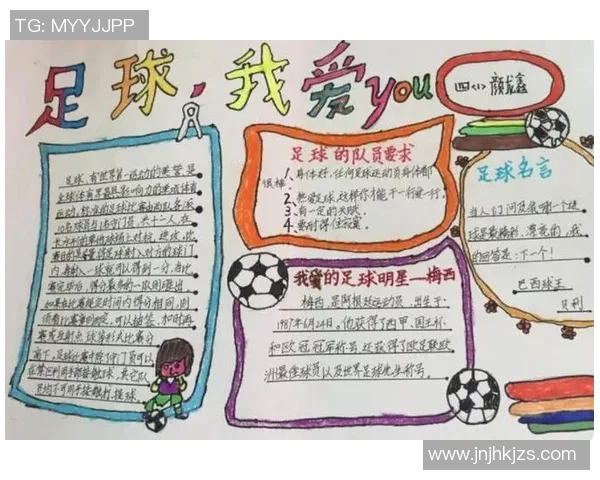 TG: MYYJJPP
足球，我爱you
四(1) 颜龙鑫
足球，有世界第一运动的美誉，是
全球体育界最具影响力的单项体育
运动，标准的足球比赛由两队各派
10名球员与1名守门员，共十二人，在
长方形的草地球场上对抗，进攻，比
赛目的是尽量将足球射入对方的球门
内，每射入一球就可以得到一分，当比
赛完毕后，得分最多的一队则胜出，
如果在比赛规定时间内得分相同，则
须看比赛章则而定，可以抽签、加时再
赛或互射点球等形式比赛分
高下，足球比赛中除了守门员可以
在禁区利用手部接触足球，其它队
员均不可用手接触打接球
足球的队员要求
1、身体好，任何足球运动员身体都
很棒
2、热爱足球，这样你才能干一行爱一行。
3、有一定的天赋，
4、要耐得住寂寞
我的足球明星—梅西
梅西，是阿根廷运动员，出生于
1987年6月24日。他获得了西甲、国王杯
和欧冠冠军称号，还获得了欧足联欧
洲最佳球员以及世界足球先生称号。
足球名言
当人们问及我哪一个进
球是最精彩、漂亮的，我
的回答是：下一个！
巴西球王
贝利
www.jnjhkjzs.com